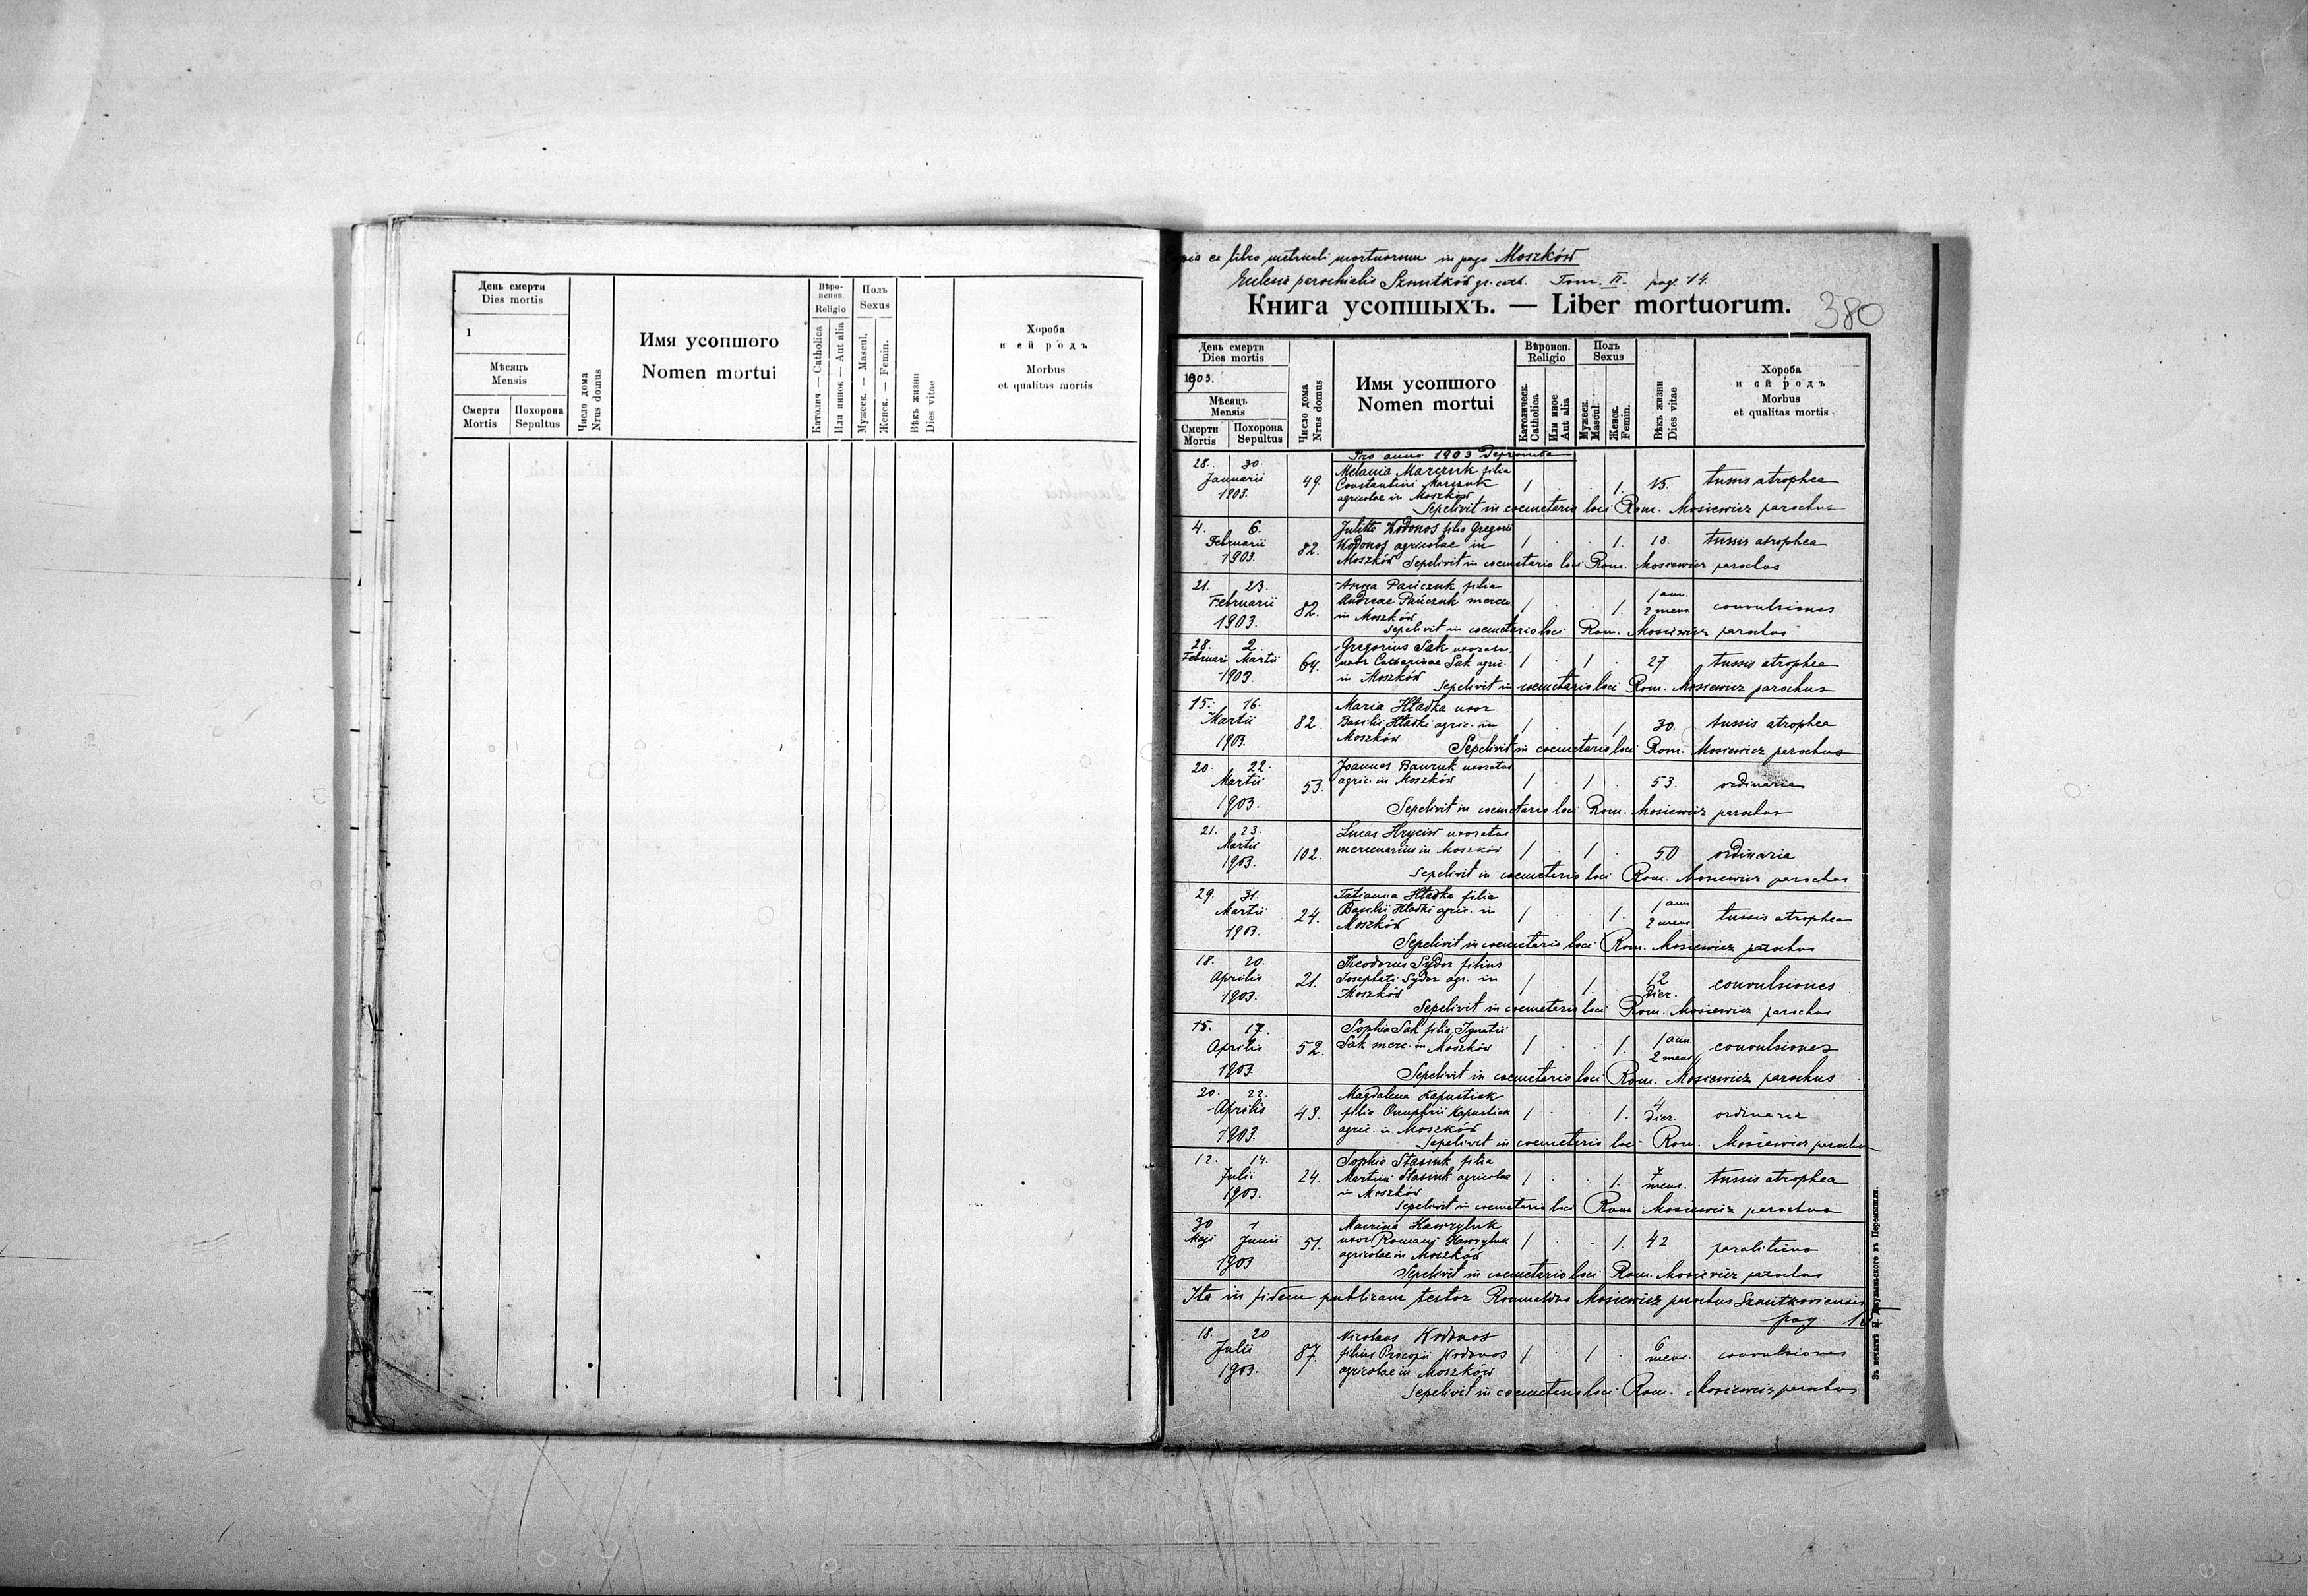 День смерти
Dies mortis
1
Мѣсяць
Mensis
Смерти
Mortis
Похорона
Sepultus
Число дома
Nrus domus
Имя усопшого
Nomen mortui
Вѣро-
испов.
Religio
Католич. — Catholica
Или инное — Aut alia
Полъ
Sexus
Мужеск. — Mascul.
Женск. — Femin.
Вѣкъ жизни
Dies vitae
Хороба
и ей родъ
Morbus
et qualitas mortis
ex libro metricali mortuorum in pago Moszków
Eclesia parochialis Szmitków gr. cath. Tom. II. pag. 14.
Книга усопшыхъ. — Liber mortuorum.
380
День смерти
Dies mortis
1903.
Мѣсяцъ
Mensis
Смерти
Mortis
Похорона
Sepultus
Число дома
Nrus domus
Имя усопшого
Nomen mortui
Вѣроисп.
Religio
Католическ.
Catholica
Или иное
Aut alia
Полъ
Sexus
Мужеск.
Mascul.
Женск.
Femin.
Вѣкъ жизни
Dies vitae
Хороба
и ей родъ
Morbus
et qualitas mortis
Pro anno 1903
28. 30. Januarii 1903. 49.
Melania Marczuk filia
Constantini Marczuk
agricolae in Moszków
1 . . 1. 15. tussis atrophea
Sepelivit in coemeterio loci Rom. Mosiewicz parochus
4. 6. Februarii 1903. 82.
Julitta Kodonos filia Gregorii
Kodonos agricolae in
Moszków
1 . . 1. 18. tussis atrophea
Sepelivit in coemeterio loci Rom. Mosiewicz parochus
21. 23. Februarii 1903. 82.
Anna Pańczuk filia
Andreae Pańczuk mercen.
in Moszków
1 . . 1. 1 ann. 2 mens. convulsiones
Sepelivit in coemeterio loci Rom. Mosiewicz parochus
28. 2. Februarii Martii 1903. 64.
Gregorius Sak uxoratus
Catharinae Sak agric.
in Moszków
1 . 1 . 27 tussis atrophea
Sepelivit in coemeterio loci Rom. Mosiewicz parochus
15. 16. Martii 1903. 82.
Maria Hładka uxor
Basilii Hładki agric. in
Moszków
1 . . 1. 30. tussis atrophea
Sepelivit in coemeterio loci Rom. Mosiewicz parochus
20. 22. Martii 1903. 53.
Joannes uxoratus
agric. in Moszków
1 . 1 . 53. ordinaria
Sepelivit in coemeterio loci Rom. Mosiewicz parochus
21. 23. Martii 1903. 102.
Lucas Hryciw uxoratus
mercenarius in Moszków
1 . 1 . 50 ordinaria
Sepelivit in coemeterio loci Rom. Mosiewicz parochus
29. 31. Martii 1903. 24.
Tatianna Hładka filia
Basilii Hładki agric. in
Moszków
1 . . 1. 1 ann 2 mens. tussis atrophea
Sepelivit in coemeterio loci Rom. Mosiewicz parochus
18. 20. Aprilis 1903. 21.
Theodorus Sydor filius
Josephati Sydor agr. in
Moszków
1 . 1. . 12 dier. convulsiones
Sepelivit in coemeterio loci Rom. Mosiewicz parochus
15. 17. Aprilis 1903. 52.
Sophia Sak filia Ignatii
Sak merc. in Moszków
1 . . 1. 1 ann. 2 mens. convulsiones
Sepelivit in coemeterio loci Rom. Mosiewicz parochus
20. 22. Aprilis 1903. 43.
Magdalena Kapustiak
filia Onuphrii Kapustiak
agric. in Moszków
1 . . 1. 4 dier. ordinaria
Sepelivit in coemeterio loci Rom. Mosiewicz parochus
12. 14. Julii 1903. 24.
Sophia Stasiuk filia
Martini Stasiuk agricolae
in Moszków
1 . . 1. 7 mens. tussis atrophea
Sepelivit in coemeterio loci Rom Mosiewicz parochus
30 1 Maji Junii 1903 51.
Macrina Hawryluk
uxor Romani Hawryluk
agricolae in Moszków
1 . . 1. 42 paraliticus
Sepelivit in coemeterio loci Rom. Mosiewicz parochus
Ita in fidem publicam testor Romualdus Mosiewicz parochus Szmitkoviensis
pag. 15
18. 20 Julii 1903. 87.
Nicolaus Kodonos
filius Procopii Kodonos
agricolae in Moszków
1 . 1 . 6 mens. convulsiones
Sepelivit in coemeterio loci Rom. Mosiewicz parochus